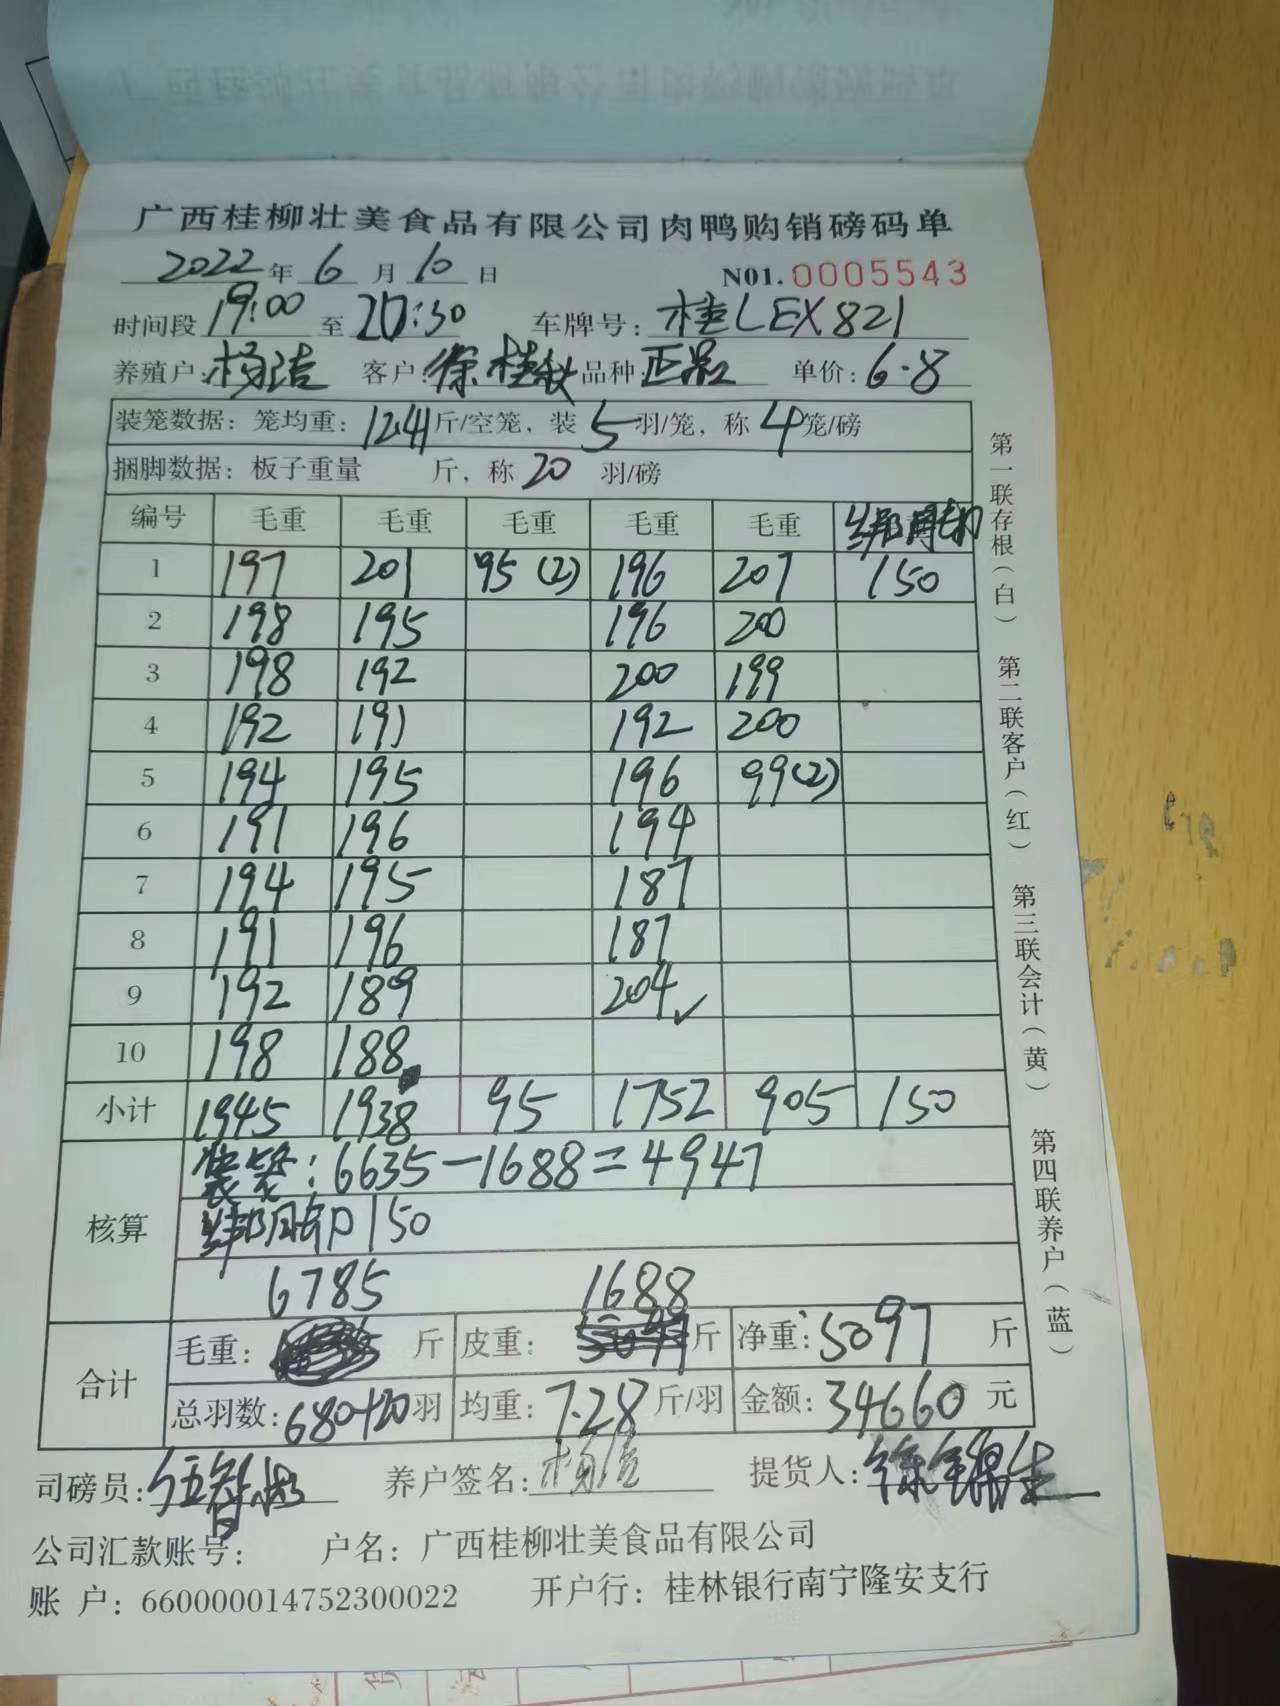 广西桂柳壮美食品有限公司肉鸭购销磅码单
2022年 6 月 10 日 N01. 0005543
时间段 19:00 至 20:30 车牌号: 桂LEX821
养殖户: 杨洁 客户: 徐桂秋 品种: 正品 单价: 6.8
装笼数据: 笼均重: 12.41 斤/空笼, 装 5 羽/笼, 称 4 笼/磅
捆脚数据: 板子重量 斤, 称 20 羽/磅
编号 毛重 毛重 毛重 毛重 毛重 绑脚
1 197 201 95(2) 196 207 150
2 198 195 196 200
3 198 192 200 199
4 192 191 192 200
5 194 195 196 99(2)
6 191 196 194
7 194 195 187
8 191 196 187
9 192 189 204✓
10 198 188
小计 1945 1938 95 1752 905 150
核算 装笼: 6635-1688=4947
绑脚 150
6785 1688
合计 毛重: 斤 皮重: 斤 净重: 5097 斤
总羽数: 680+20 羽 均重: 7.28 斤/羽 金额: 34660 元
司磅员: 养户签名: 杨洁 提货人:
公司汇款账号: 户名: 广西桂柳壮美食品有限公司
账 户: 660000014752300022 开户行: 桂林银行南宁隆安支行
第一联存根(白) 第二联客户(红) 第三联会计(黄) 第四联养户(蓝)